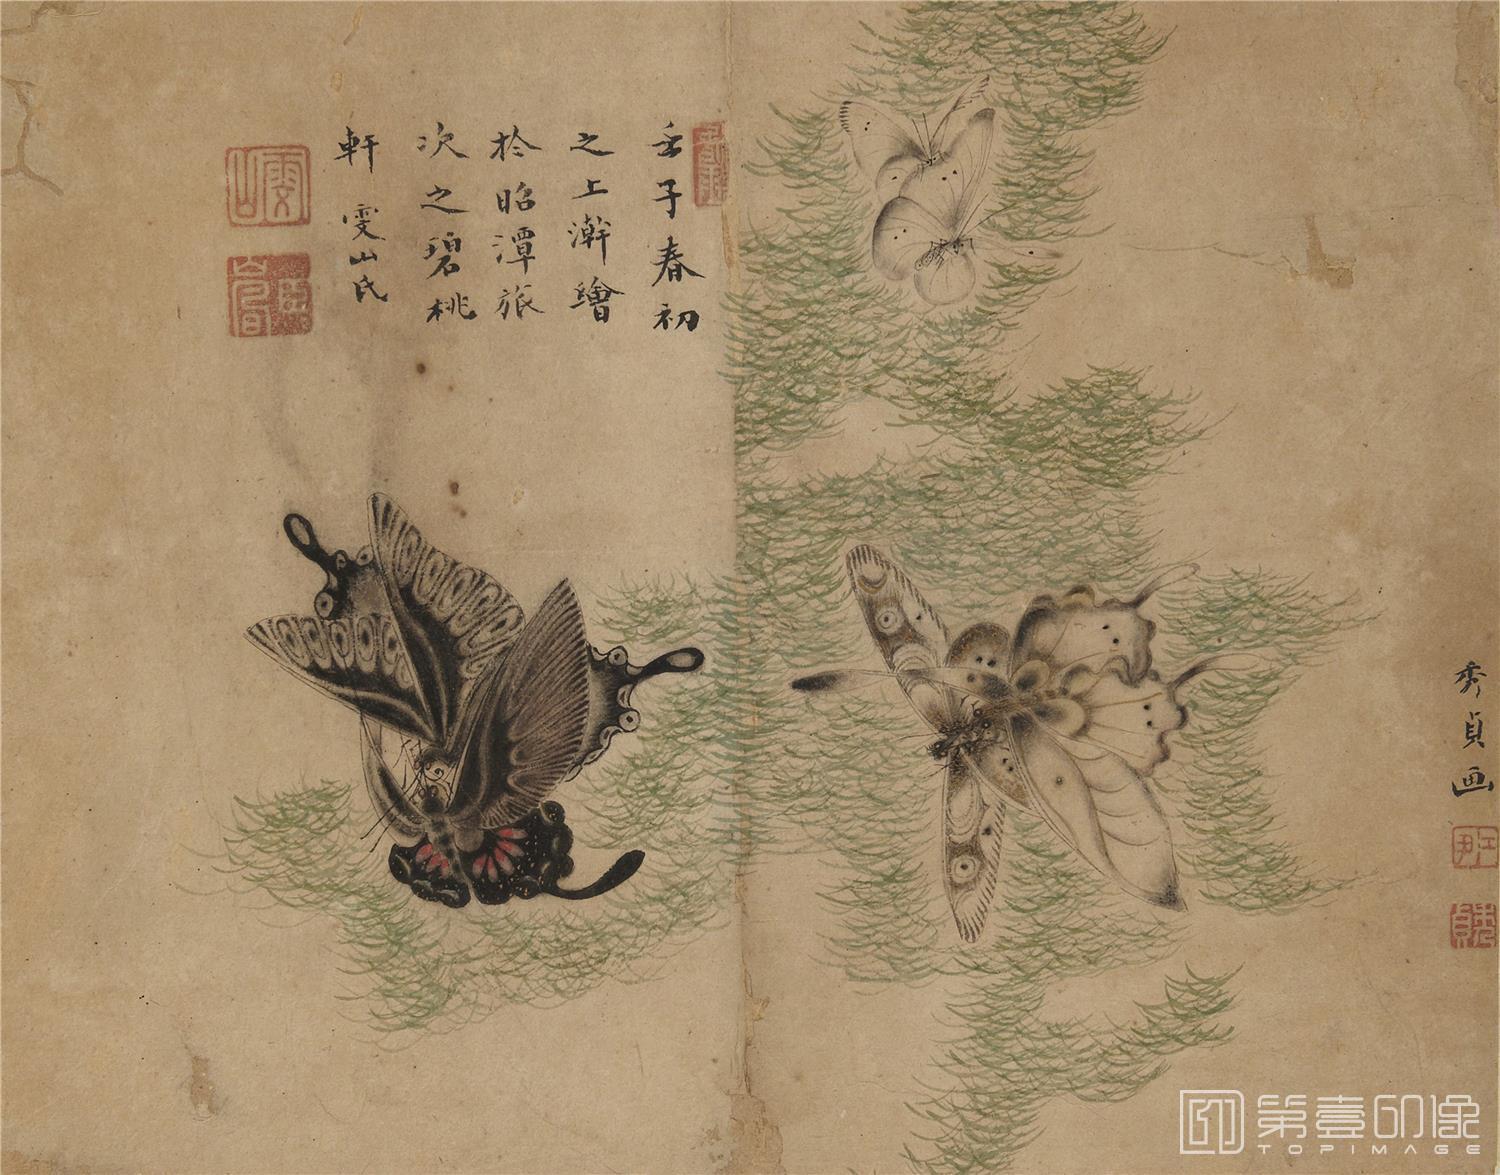 壬子春初
之上澣繪
於昭潭旅
次之碧桃
軒 雯山氏
雯山
秀貞画
第壹印像
TOPIMAGE